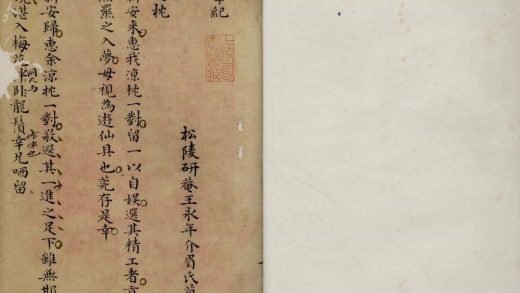 松陵研菴王永年介眉氏
紀
枕
安來惠我涼枕一對留一以自娛選其精工者
羆之入夢毋視為遊仙具也莞存是幸
安歸惠余涼枕一對敬選其一進之足下雖無邯
湛入梅花卧龍鬚幸兄哂留